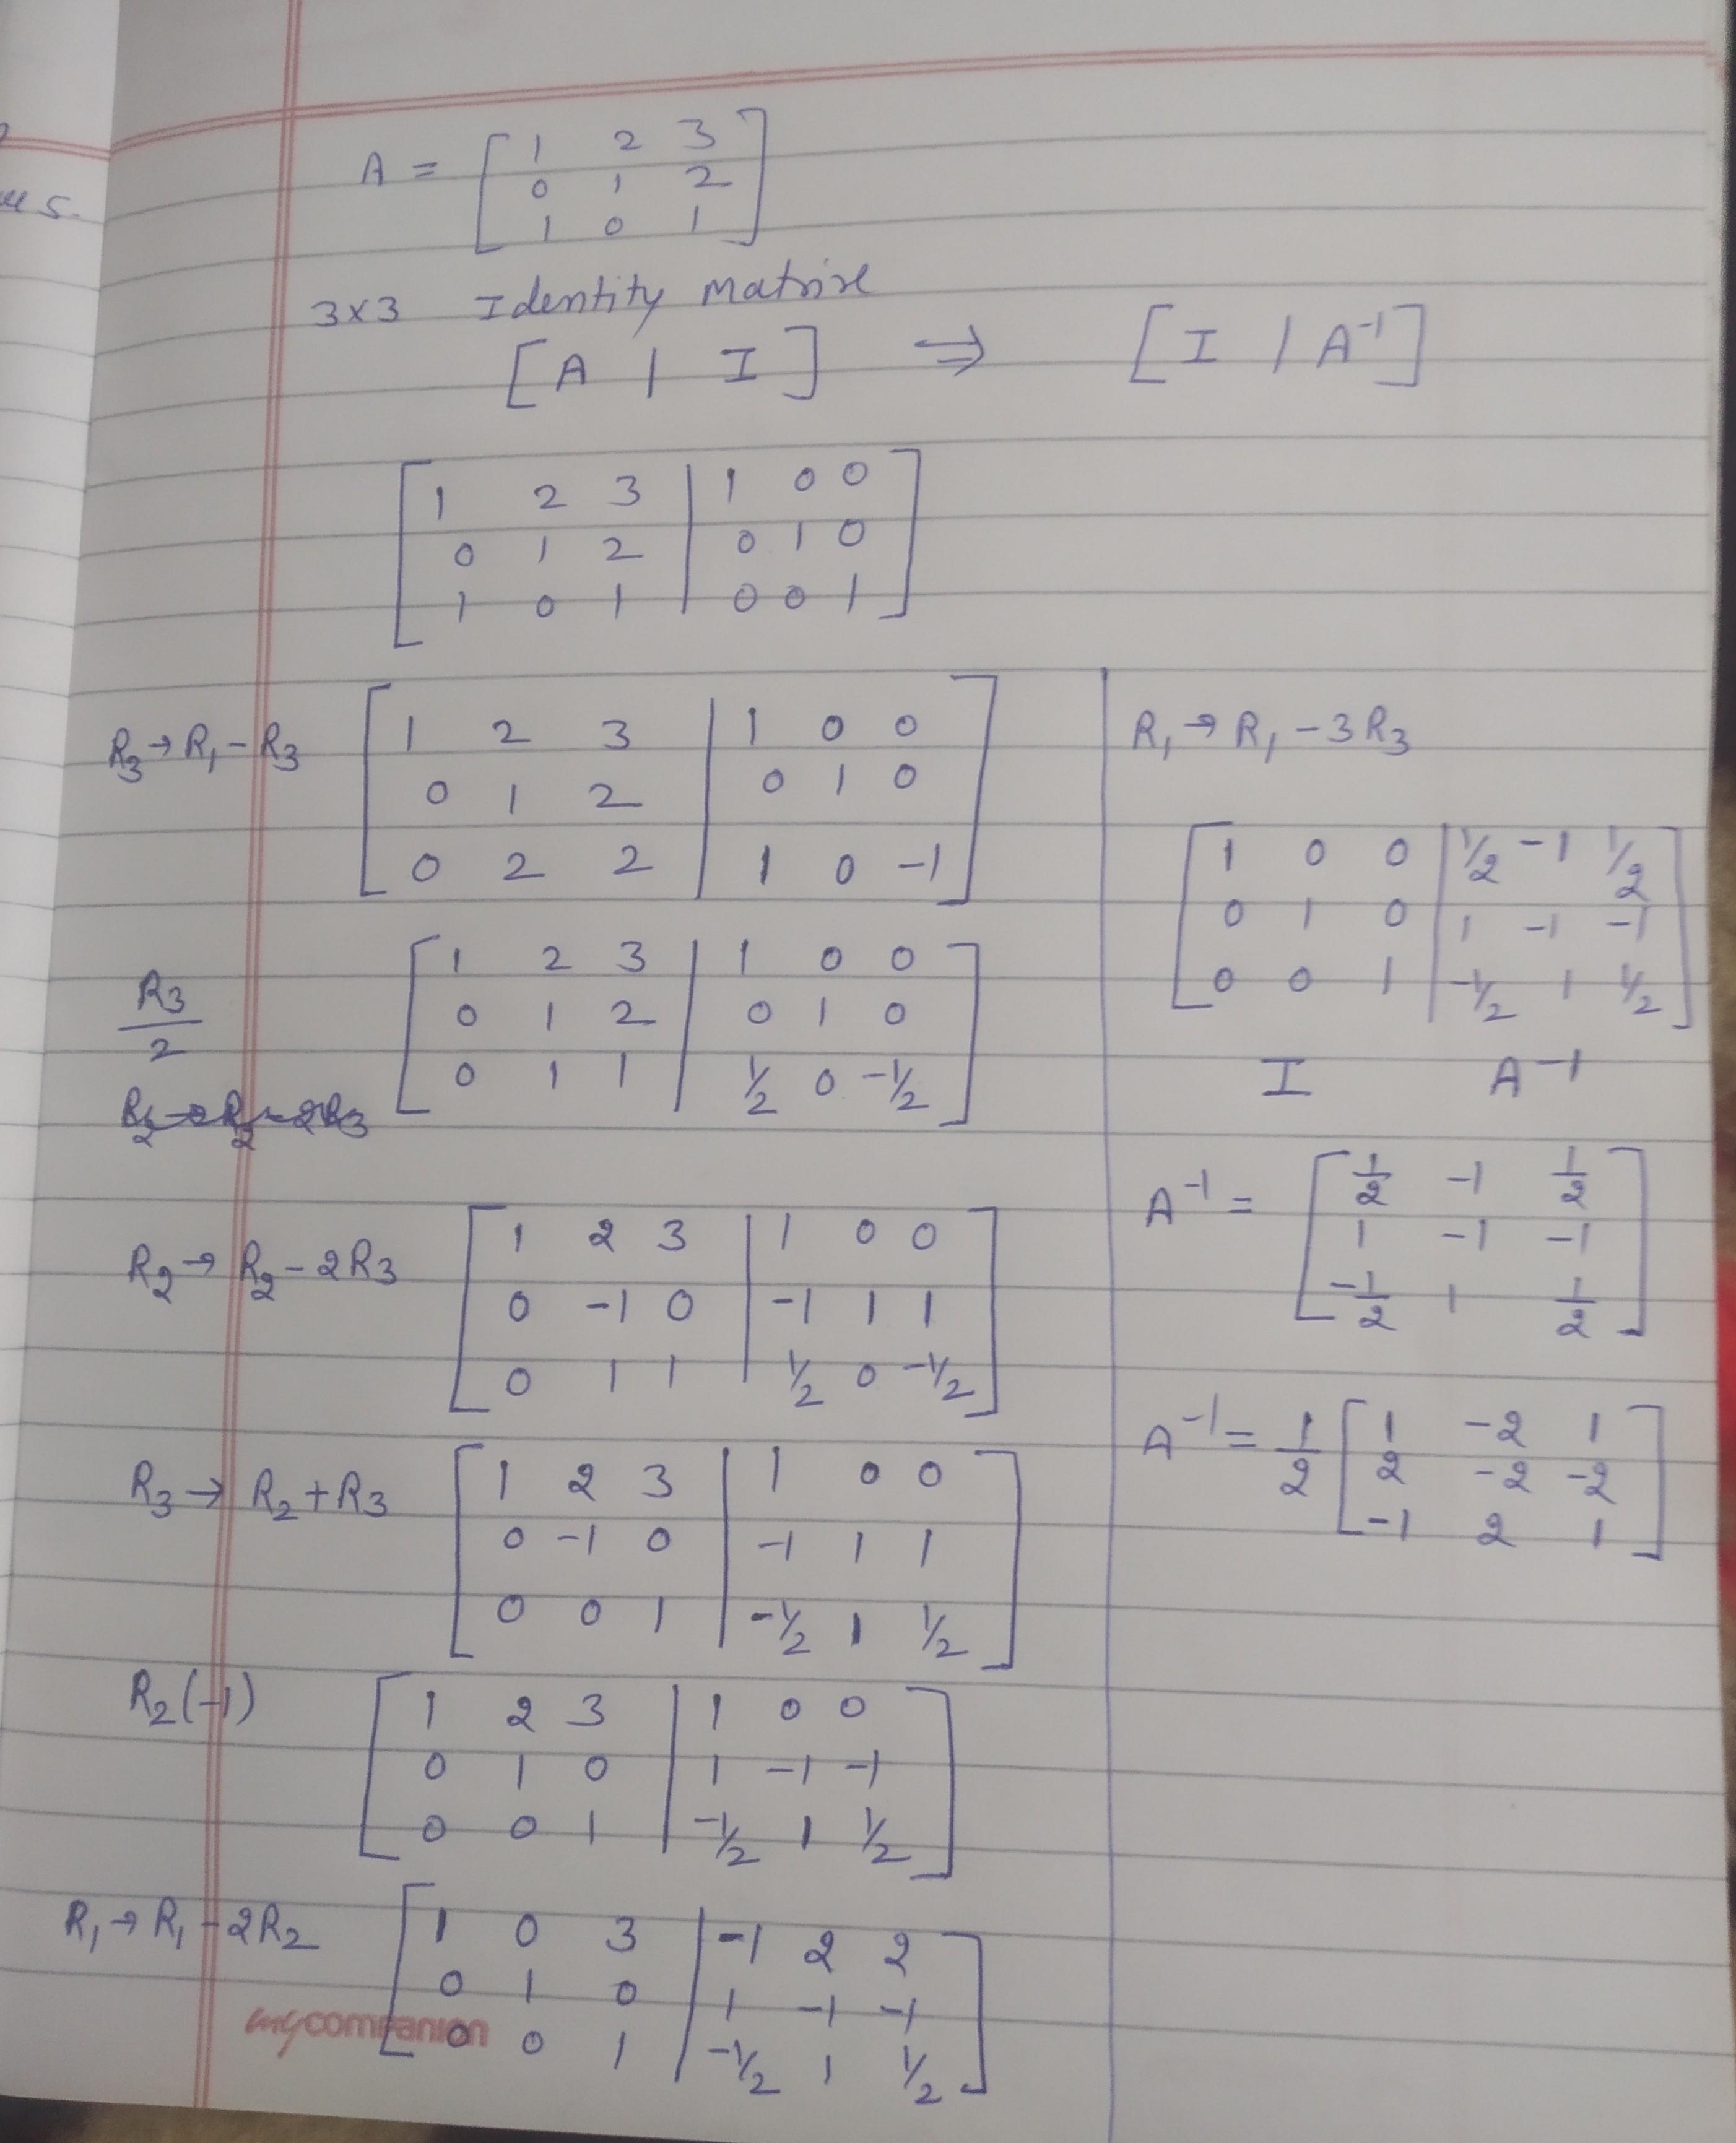 us.
A = [ 1 2 3
0 1 2
1 0 1 ]
3×3 Identity matrix
[ A | I ] ⇒ [ I | A⁻¹ ]
[ 1 2 3 | 1 0 0
0 1 2 | 0 1 0
1 0 1 | 0 0 1 ]
R₃ → R₁ - R₃ [ 1 2 3 | 1 0 0
0 1 2 | 0 1 0
0 2 2 | 1 0 -1 ]
R₃/2 [ 1 2 3 | 1 0 0
0 1 2 | 0 1 0
0 1 1 | 1/2 0 -1/2 ]
R₂ → R₂ - 2R₃ [ 1 2 3 | 1 0 0
0 -1 0 | -1 1 1
0 1 1 | 1/2 0 -1/2 ]
R₃ → R₂ + R₃ [ 1 2 3 | 1 0 0
0 -1 0 | -1 1 1
0 0 1 | -1/2 1 1/2 ]
R₂(-1) [ 1 2 3 | 1 0 0
0 1 0 | 1 -1 -1
0 0 1 | -1/2 1 1/2 ]
R₁ → R₁ - 2R₂ [ 1 0 3 | -1 2 2
0 1 0 | 1 -1 -1
0 0 1 | -1/2 1 1/2 ]
mycompanion
R₁ → R₁ - 3R₃
[ 1 0 0 | 1/2 -1 1/2
0 1 0 | 1 -1 -1
0 0 1 | -1/2 1 1/2 ]
I A⁻¹
A⁻¹ = [ 1/2 -1 1/2
1 -1 -1
-1/2 1 1/2 ]
A⁻¹ = 1/2 [ 1 -2 1
2 -2 -2
-1 2 1 ]